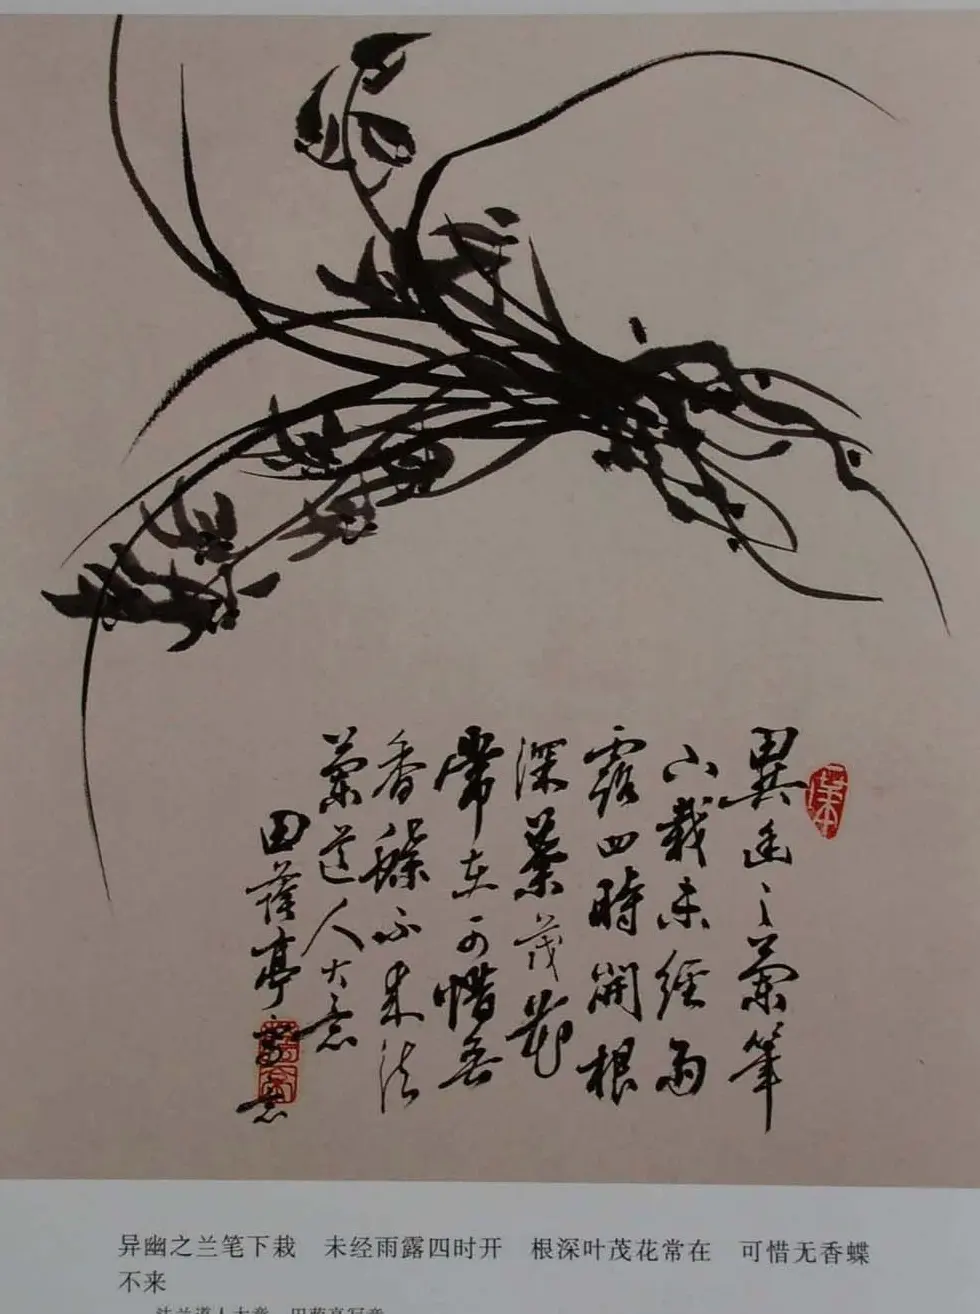 異幽之蘭筆
下栽未經雨
露四時開根
深葉茂花
常在可惜無
香蝶不来法
蘭道人大意
田蔭亭寫意
异幽之兰笔下栽 未经雨露四时开 根深叶茂花常在 可惜无香蝶
不来